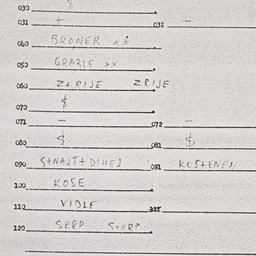 030 $
031 + 032 –
040 BRONER xx
050 GRABLE xx
060 Z+RIJE ZRIJE
070 $
071 – 072 –
080 $ 081 $
090 S+NAJT+DIHEJ 091 KOS+ENEN
100 KOSE
110 VIDLE
120 SERP S+ERP